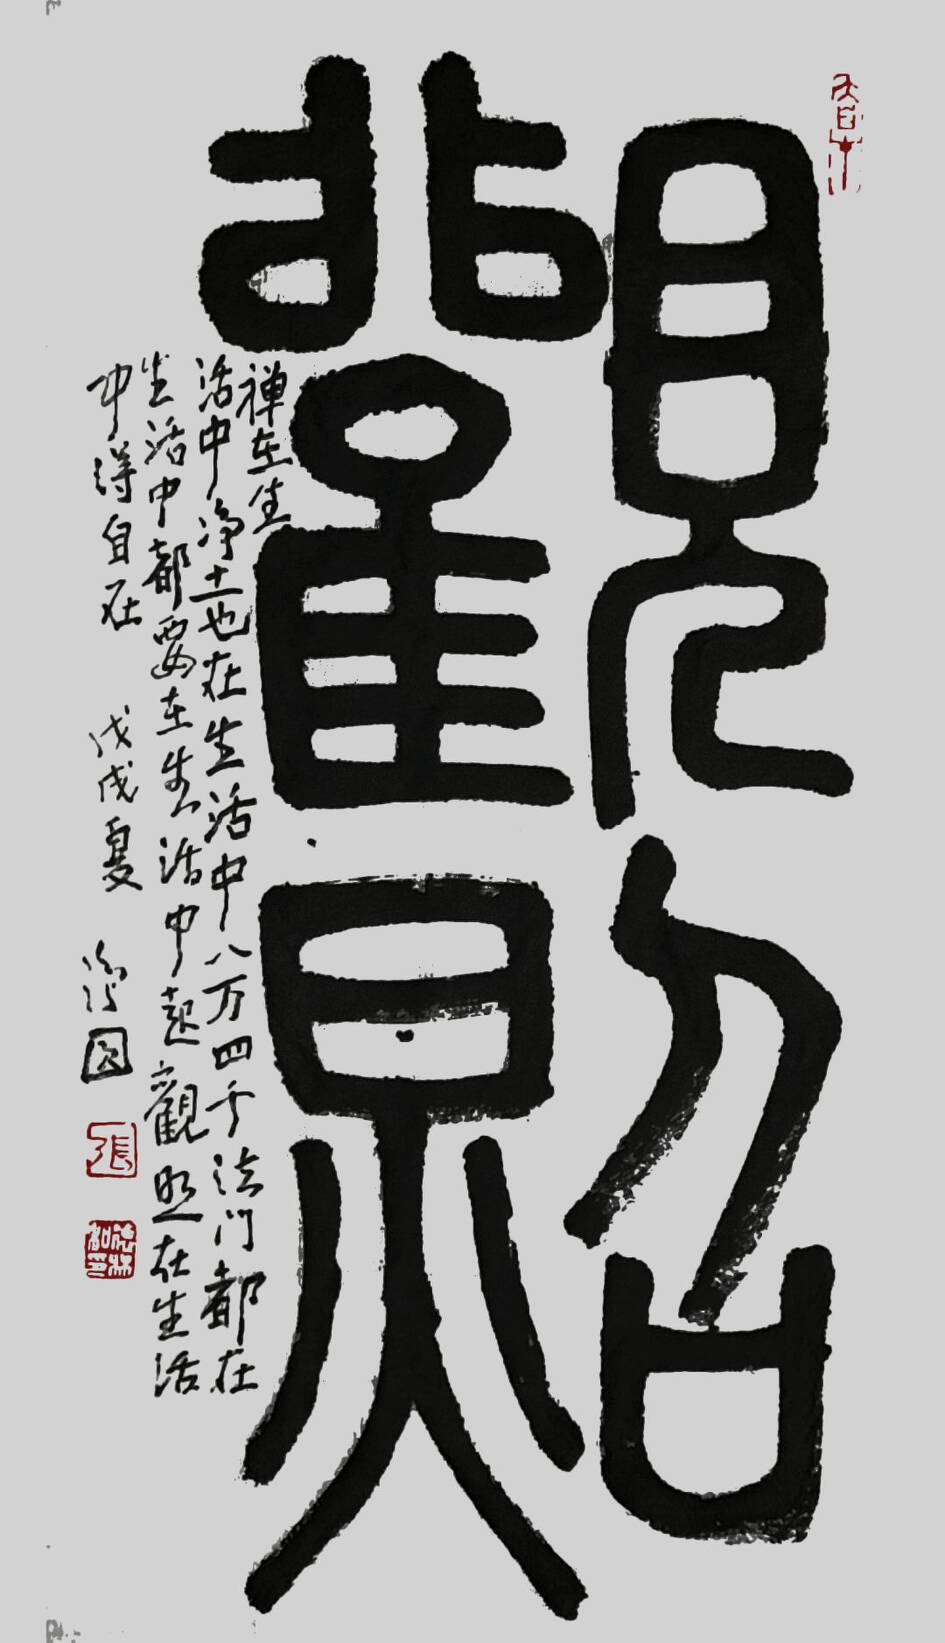 觀照
禅在生
活中净土也在生活中八万四千法门都在
生活中都要在生活中起觀照在生活
中得自在 戊戌夏
張